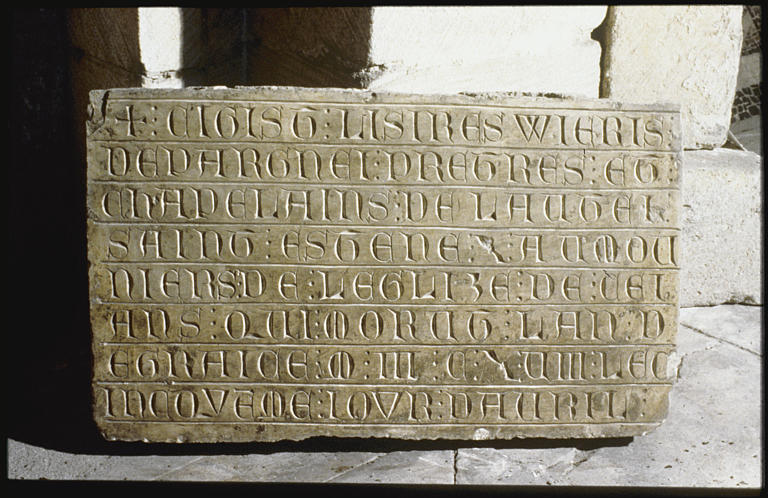 + : CI GIST : LI SIRES WIERIS :
DE PARGNEI : PRETRES : ET :
CHAPELAINS : DE L AUTEL
SAINT : ESTENE : X AUMOU
NIERS : DE : LEGLIZE : DE : CEL
ANS : QUI : MORUT : LAN : D
E GRAICE : M : III : C : X UIII : LE C
INCOVEME : IOVR : D AURIL :